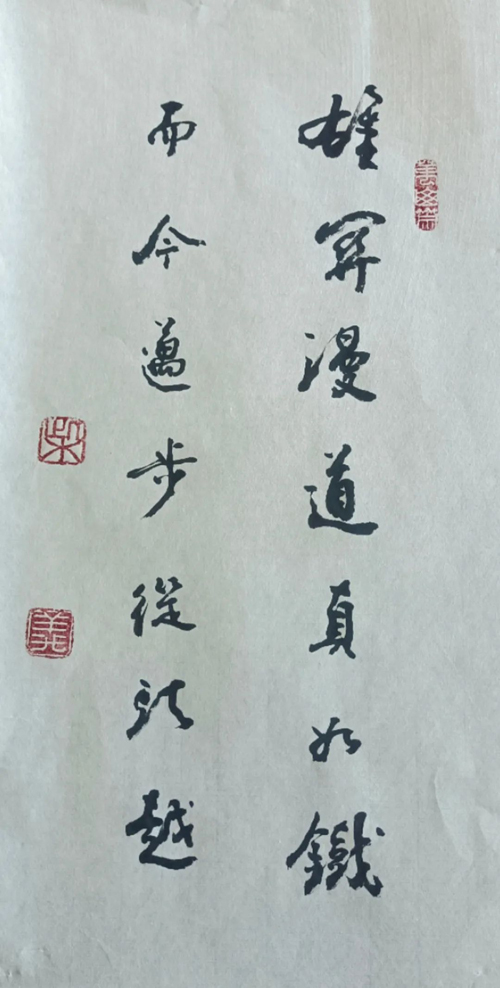 雄関漫道真如鐵
而今邁步從頭越
柴